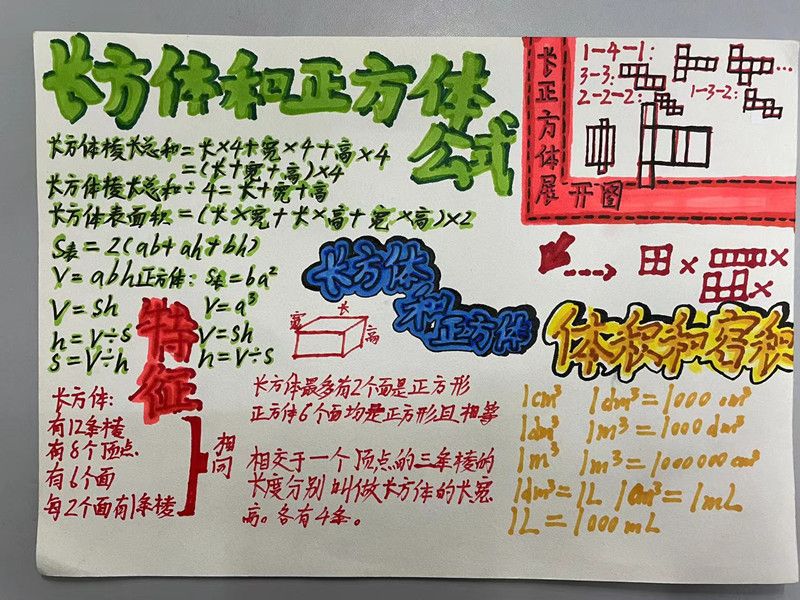 长方体和正方体
公式
长方体棱长总和=长×4+宽×4+高×4
=(长+宽+高)×4
长方体棱长总和÷4=长+宽+高
长方体表面积=(长×宽+长×高+宽×高)×2
S表=2(ab+ah+bh)
V=abh 正方体: S表=6a²
V=Sh V=a³
h=V÷S V=Sh
S=V÷h h=V÷S
特征
长方体:
有12条棱
有8个顶点
有6个面
每2个面有1条棱
相同
长方体
和正方体
长
宽
高
长方体最多有2个面是正方形
正方体6个面均是正方形且相等
相交于一个顶点的三条棱的
长度分别叫做长方体的长宽
高。各有4条。
长正方体展开图
1-4-1:
3-3:
2-2-2:
1-3-2:
...
× ×
×
体积和容积
1cm³ 1dm³=1000cm³
1dm³ 1m³=1000dm³
1m³ 1m³=1000000cm³
1dm³=1L 1cm³=1mL
1L=1000mL